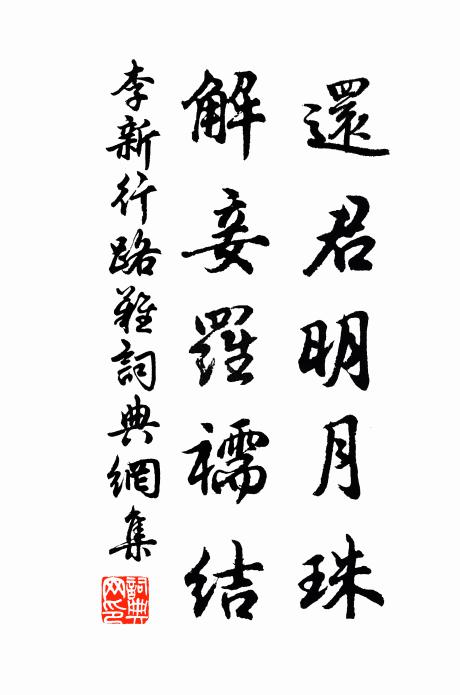 還君明月珠
解妾羅襦結
李新行路難詞典網集
詞典
网印